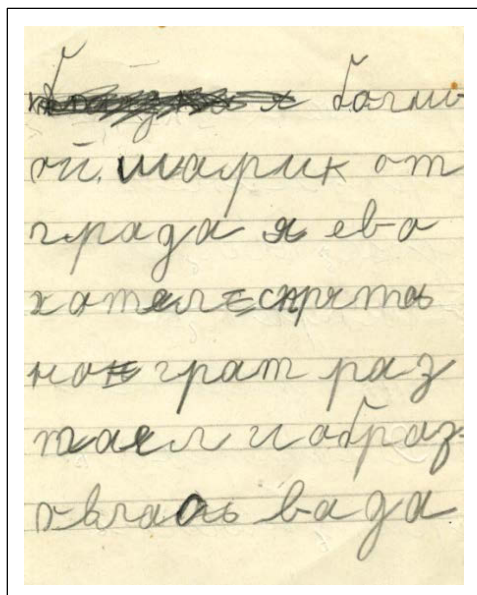 болш
ой шарик от
града я ево
хател спрять
но грат раз
таел и образ-
овлаось вада